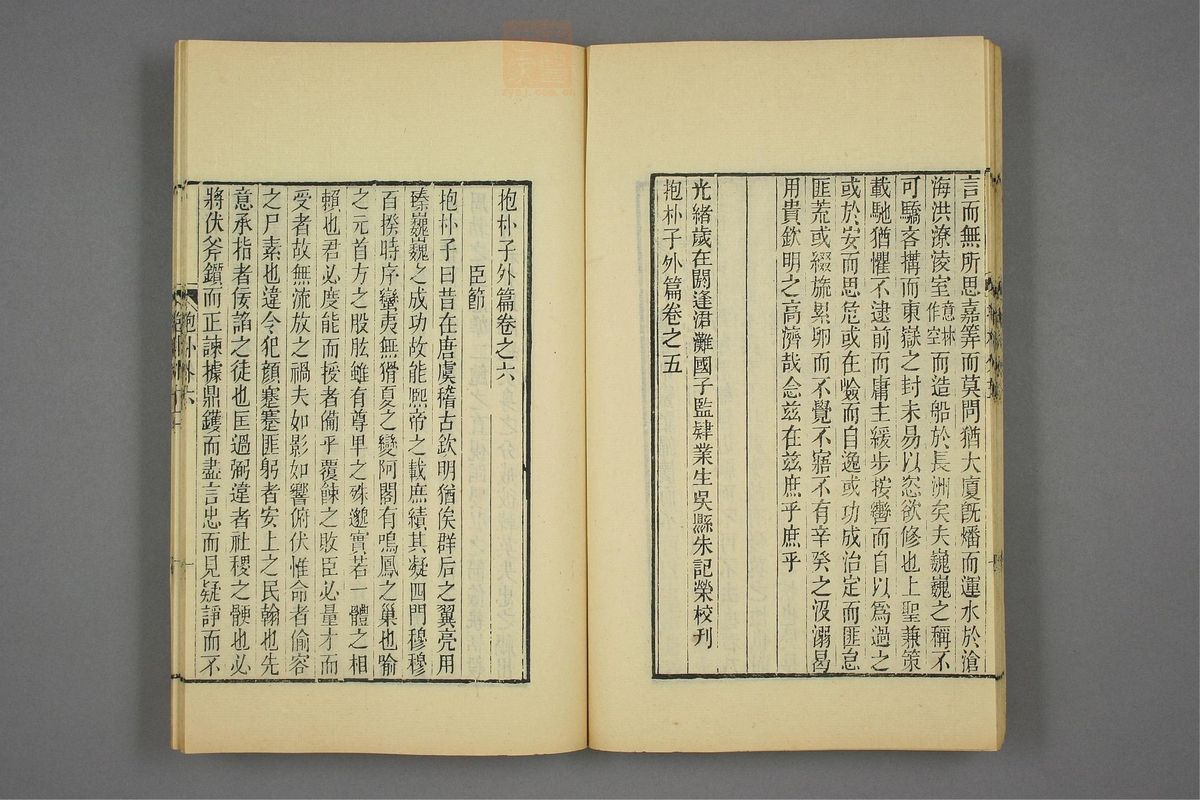 言而無所思嘉筭而莫問猶大廈既燔而運水於滄
海洪潦淩室意林作空而造船於長洲矣夫巍巍之稱不
可驕吝搆而東嶽之封未易以恣欲修也上聖兼策
載馳猶懼不逮前而庸主緩步按轡而自以爲過之
或於安而思危或在嶮而自逸或功成治定而匪怠
匪荒或綴旒累卵而不覺不寤不有辛癸之沒溺曷
用貴欽明之高濟哉念兹在兹庶乎庶乎
光緒歲在閼逢涒灘國子監肄業生吳縣朱記榮校刊
抱朴子外篇卷之五
抱朴子外篇卷之六
臣節
抱朴子曰昔在唐虞稽古欽明猶俟群后之翼亮用
臻巍巍之成功故能熙帝之載庶績其凝四門穆穆
百揆時序蠻夷無猾夏之變阿閣有鳴鳳之巢也喻
之元首方之股肱雖有尊卑之殊邈實若一體之相
賴也君必度能而授者備乎覆餗之敗臣必量才而
受者故無流放之禍夫如影如響俯伏惟命者偷容
之尸素也違令犯顏蹇蹇匪躬者安上之民翰也先
意承指者佞諂之徒也匡過弼違者社稷之骾也必
將伏斧鑕而正諫據鼎鑊而盡言忠而見疑諍而不
抱朴外六